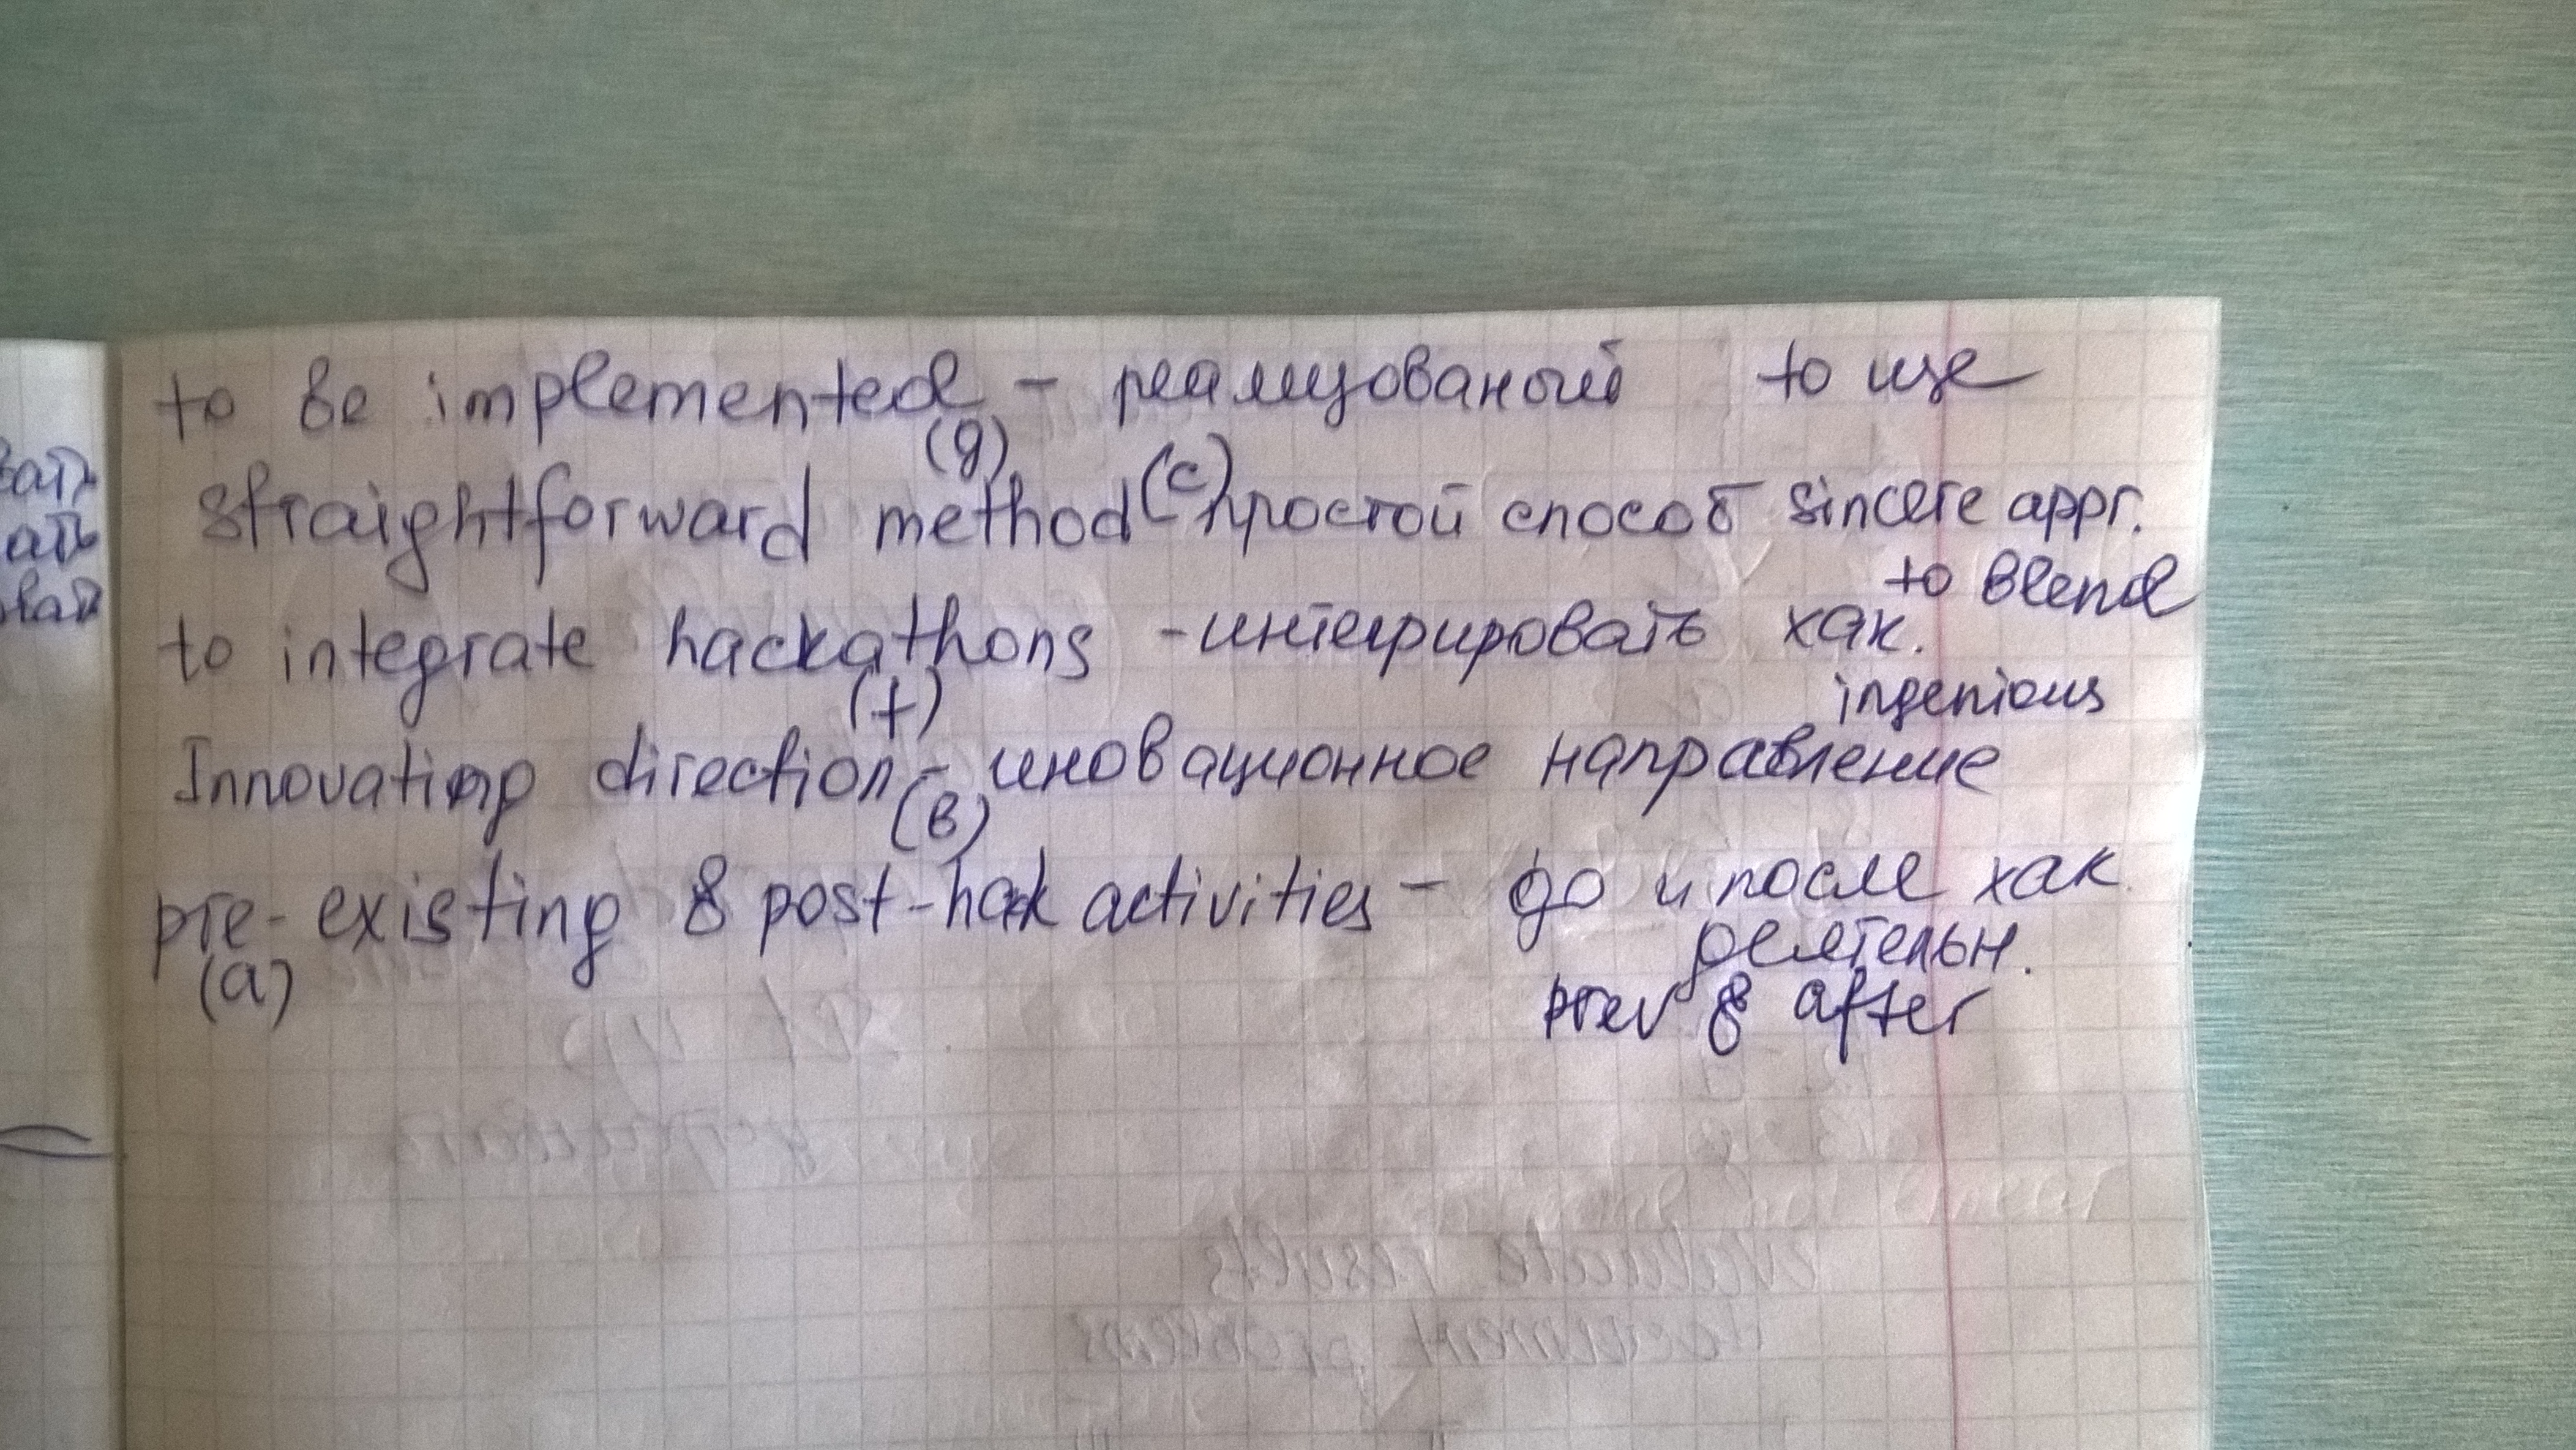 вать
ать
вая
to be implemented - реализованый to use
(g)
straightforward method - простой способ sincere appr.
(c)
to integrate hackathons - интегрировать хак. to blend
(f)
Innovating direction - инновационное направление ingenious
(в)
pre-existing & post-hack activities - до и после хак
(a)
деятельн.
& after